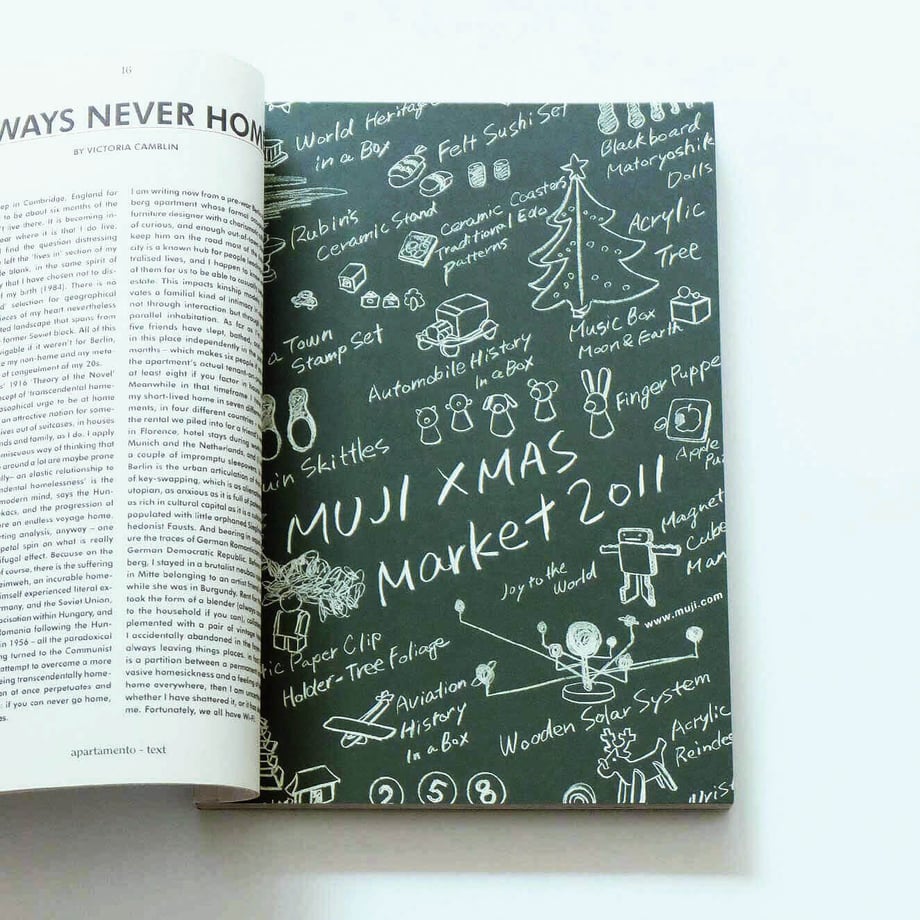 16
WAYS NEVER HOM
BY VICTORIA CAMBLIN
ep in Cambridge, England for
to be about six months of the
't live there. It is becoming in-
ear where it is that I do live.
I find the question distressing
left the 'lives in' section of my
le blank, in the same spirit of
y that I have chosen not to dis-
f my birth (1984). There is no
selection for geographical
ieces of my heart nevertheless
ted landscape that spans from
former Soviet block. All of this
vigable if it weren't for Berlin,
e my non-home and my meta-
of congealment of my 20s.
s' 1916 'Theory of the Novel'
ncept of 'transcendental home-
osophical urge to be at home
an attractive notion for some-
lives out of suitcases, in houses
nds and family, as I do. I apply
miscuous way of thinking that
around a lot are maybe prone
lly– an elastic relationship to
ndental homelessness' is the
modern mind, says the Hun-
kacs, and the progression of
re an endless voyage home.
ting analysis, anyway – one
petal spin on what is really
ifugal effect. Because on the
f course, there is the suffering
eimweh, an incurable home-
imself experienced literal ex-
rmany, and the Soviet Union,
acisation within Hungary, and
Romania following the Hun-
in 1956 – all the paradoxical
ng turned to the Communist
attempt to overcome a more
eing transcendentally home-
n at once perpetuates and
: if you can never go home,
es.
I am writing now from a pre-war
berg apartment whose formal
furniture designer with a charism
of curious, and enough out-of-
keep him on the road most of
city is a known hub for people
tralised lives, and I happen to
of them for us to be able to casu
estate. This impacts kinship mod
vates a familial kind of intimacy
not through interaction but through
parallel inhabitation. As far as
five friends have slept, bathed,
in this place independently in the
months – which makes six people
the apartment's actual tenant
at least eight if you factor in
Meanwhile in that timeframe I
my short-lived home in seven differ
ments, in four different countries
the rental we piled into for a friend
in Florence, hotel stays during
Munich and the Netherlands, and
a couple of impromptu sleepover
Berlin is the urban articulation of
of key-swapping, which is as
utopian, as anxious as it is full of
as rich in cultural capital as it is
populated with little orphaned
hedonist Fausts. And bearing in
ure the traces of German Roman
German Democratic Republic.
berg, I stayed in a brutalist
in Mitte belonging to an artist
while she was in Burgundy. Rent
took the form of a blender (always
to the household if you can), com
plemented with a pair of vintage
I accidentally abandoned in the
always leaving things places. In
is a partition between a perman
vasive homesickness and a feeling
home everywhere, then I am
whether I have shattered it, or
me. Fortunately, we all have Wi-Fi.
apartamento - text
World Heritage
in a Box
Felt Sushi Set
Blackboard
Matoryoshik
Dolls
Rubin's
Ceramic Stand
Ceramic Coasters
Traditional Edo
patterns
Acrylic
Tree
a Town
Stamp Set
Music Box
Moon & Earth
Automobile History
In a Box
Finger Puppe
Apple
Pu
uin Skittles
MUJI XMAS
Market 2011
Magnet
Cube
Man
Joy to the
World
www.muji.com
ic Paper Clip
Holder-Tree Foliage
Aviation
History
In a Box
Wooden Solar System
Acrylic
Reinde
2 5 8